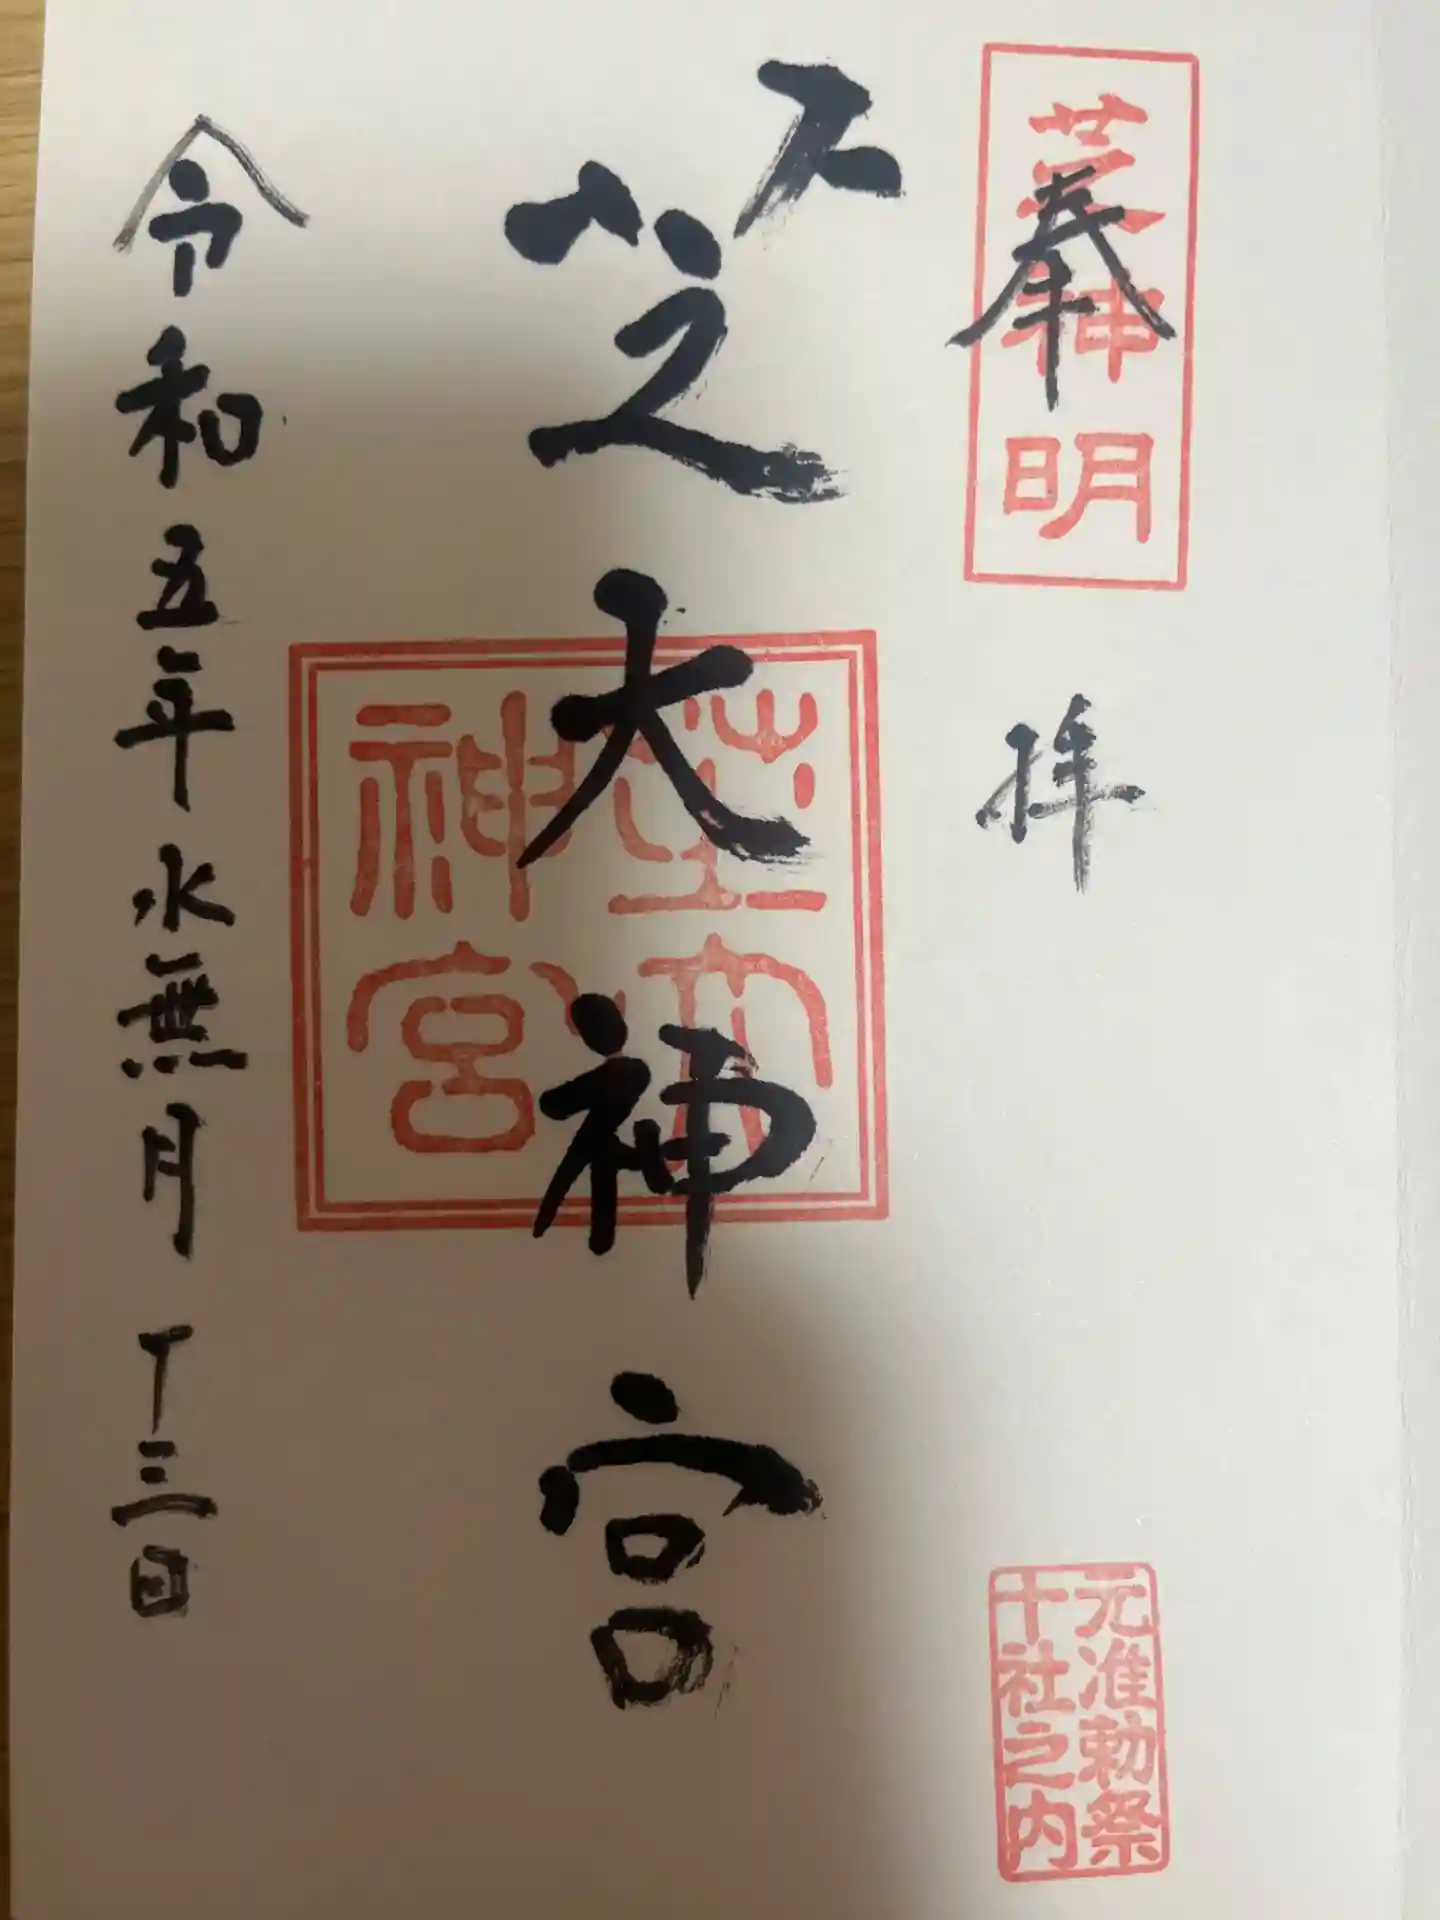 芝神明
奉拝
元准勅祭
十社之内
芝大神宮
芝大
神宮
令和五年水無月十三日